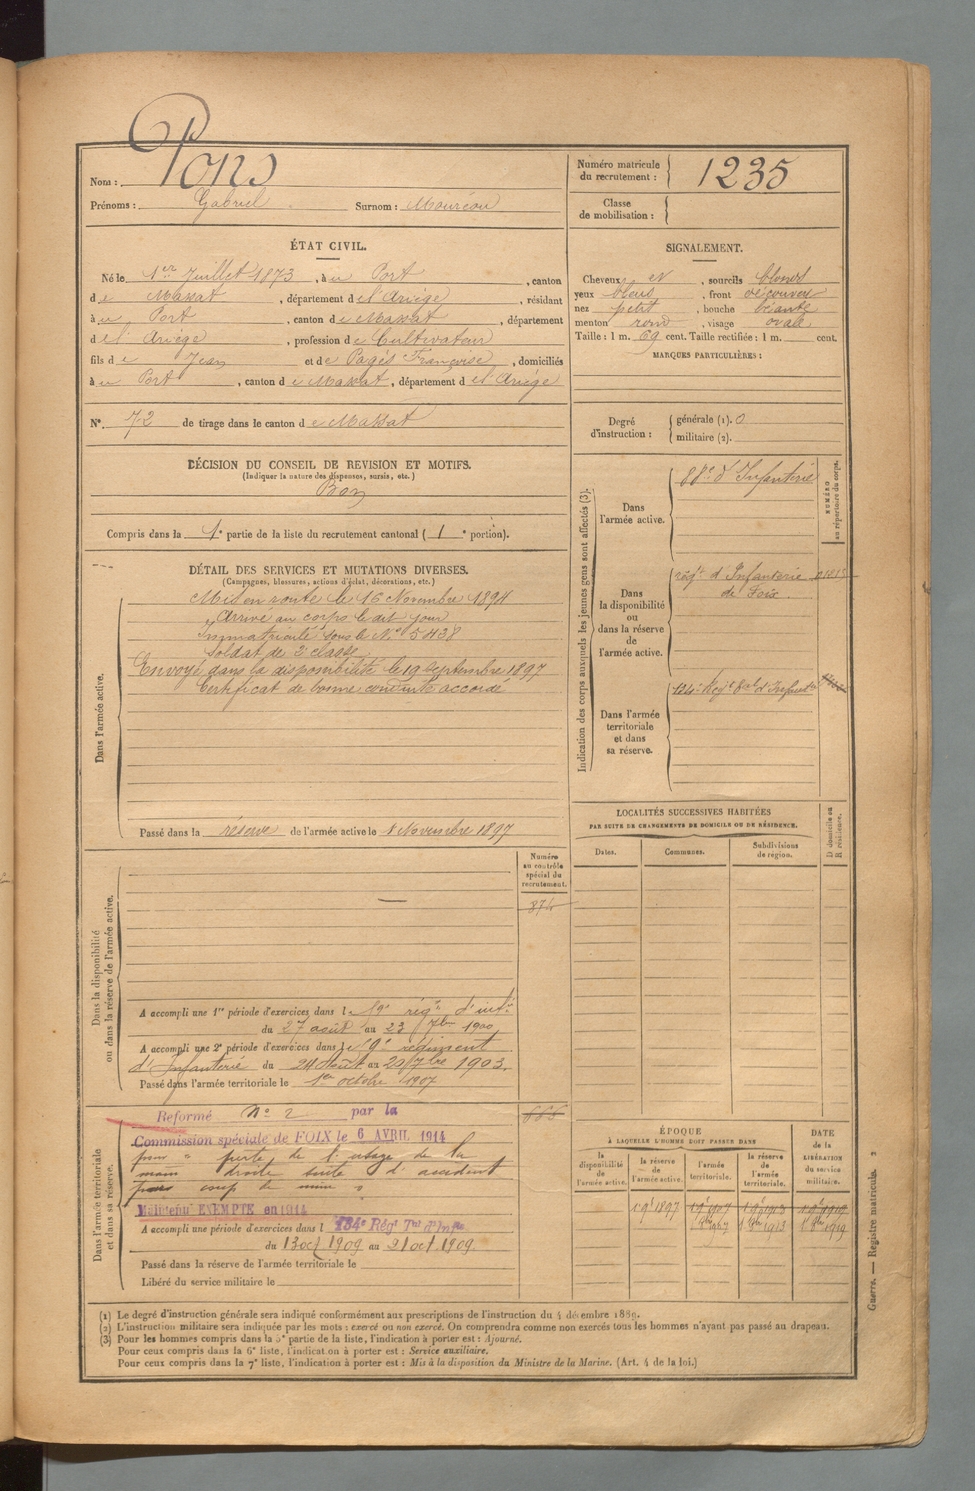 Nom : Pons
Prénoms : Gabriel Surnom : Mouréou
Numéro matricule du recrutement : 1235
Classe de mobilisation :
ÉTAT CIVIL.
Né le 1er Juillet 1873, à u Port, canton
d e Massat, département d e l'Ariège, résidant
à u Port, canton d e Massat, département
d e l'Ariège, profession d e Cultivateur
fils d e Jean et d e Pagès Françoise, domiciliés
à u Port, canton d e Massat, département d e l'Ariège
N° 72 de tirage dans le canton d e Massat
SIGNALEMENT.
Cheveux et, sourcils blonds
yeux bleus, front découvert
nez petit, bouche béante
menton rond, visage ovale
Taille : 1 m. 69 cent. Taille rectifiée : 1 m. cent.
MARQUES PARTICULIÈRES :
Degré d'instruction : générale (1). 0
militaire (2).
DÉCISION DU CONSEIL DE REVISION ET MOTIFS.
(Indiquer la nature des dispenses, sursis, etc.)
Bon
Compris dans la 1e partie de la liste du recrutement cantonal ( 1e portion).
DÉTAIL DES SERVICES ET MUTATIONS DIVERSES.
(Campagnes, blessures, actions d'éclat, décorations, etc.)
Dans l'armée active.
Mis en route le 16 Novembre 1894
Arrivé au corps le dit jour
Immatriculé sous le N° 5438
Soldat de 2e classe
Envoyé dans la disponibilité le 19 Septembre 1897
Certificat de bonne conduite accordé
Passé dans la réserve de l'armée active le 1 Novembre 1897
Indication des corps auxquels les jeunes gens sont affectés (3).
NUMÉRO au répertoire du corps.
Dans l'armée active.
88e d'Infanterie
Dans la disponibilité ou dans la réserve de l'armée active.
régt d'Infanterie
de Foix.
Dans l'armée territoriale et dans sa réserve.
134e Régt tal d'Infanterie
LOCALITÉS SUCCESSIVES HABITÉES
PAR SUITE DE CHANGEMENTS DE DOMICILE OU DE RÉSIDENCE.
Dates. Communes. Subdivisions de région. D domicile ou R résidence.
Dans la disponibilité ou dans la réserve de l'armée active.
Numéro au contrôle spécial du recrutement.
874
A accompli une 1re période d'exercices dans l e 59e régt d'infie
du 27 août au 23 7bre 1900
A accompli une 2e période d'exercices dans l e 59e régiment
d'Infanterie du 24 Août au 20 7bre 1903.
Passé dans l'armée territoriale le 1er octobre 1907
Dans l'armée territoriale et dans sa réserve.
Reformé N° 2 par la
Commission spéciale de FOIX le 6 AVRIL 1914
pour " perte de l'usage de la
main droite suite d'accident
Maintenu EXEMPTÉ en 1914
A accompli une période d'exercices dans l 134e Régt Tal d'Infie
du 13 oct 1909 au 21 oct 1909.
Passé dans la réserve de l'armée territoriale le
Libéré du service militaire le
ÉPOQUE
À LAQUELLE L'HOMME DOIT PASSER DANS
la disponibilité de l'armée active. la réserve de l'armée active. l'armée territoriale. la réserve de l'armée territoriale.
DATE de la LIBÉRATION du service militaire.
1 9bre 1897 1 9bre 1907 1 9bre 1913 1 9bre 1919
1 8bre 1907 1 8bre 1913 1 8bre 1919
(1) Le degré d'instruction générale sera indiqué conformément aux prescriptions de l'instruction du 4 décembre 1889.
(2) L'instruction militaire sera indiquée par les mots : exercé ou non exercé. On comprendra comme non exercés tous les hommes n'ayant pas passé au drapeau.
(3) Pour les hommes compris dans la 5e partie de la liste, l'indication à porter est : Ajourné.
Pour ceux compris dans la 6e liste, l'indication à porter est : Service auxiliaire.
Pour ceux compris dans la 7e liste, l'indication à porter est : Mis à la disposition du Ministre de la Marine. (Art. 4 de la loi.)
Guerre. — Registre matricule.